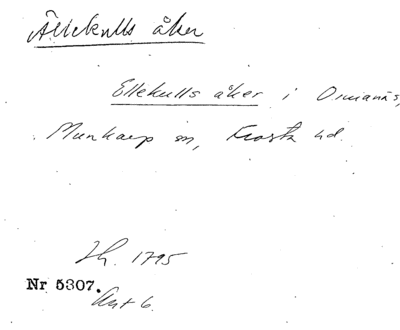 Ällekulls åker
Ellekulls åker i Ormanäs,
Munkarp sn, Frosta hd.
Jh. 1795
Nr 5307.
Akt 6.